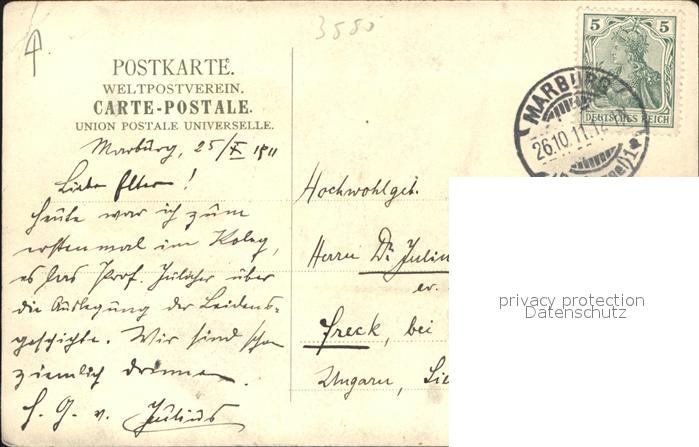 3580
POSTKARTE.
WELTPOSTVEREIN.
CARTE-POSTALE.
UNION POSTALE UNIVERSELLE.
5 5
DEUTSCHES REICH
MARBURG
26.10.11.12
Marburg, 25/X 1911
Liebe Eltern!
Heute war ich zum
erstenmal im Koleg,
es las Prof. Jülicher über
die Auslegung der Leidens-
geschichte. Wir sind schon
ziemlich drinnen.
H. G. v. Julius
Hochwohlgeb.
Herrn Dr. Julius
ev.
Freck, bei
Ungarn,
privacy protection
Datenschutz